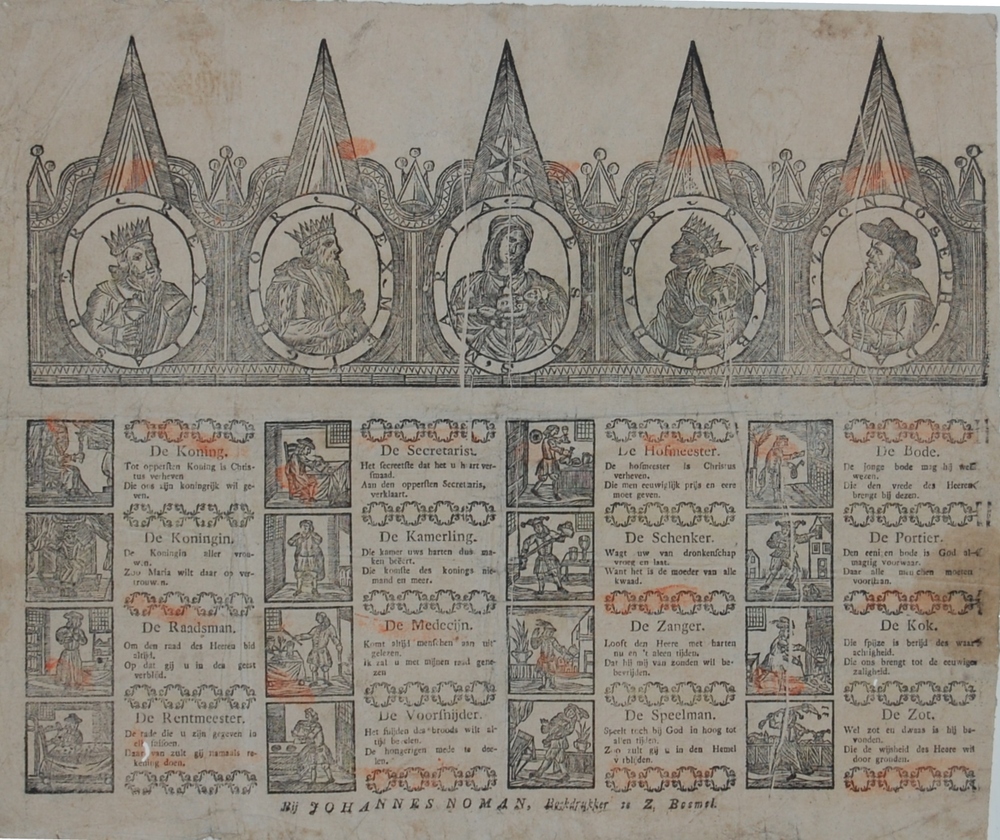 REX
REX MELCHIOR
IESUS MARIA
REX BALTHASAR
IOSEPH DAVIDZOON
De Koning.
Tot oppersten Koning is Chris-
tus verheven
Die ons zijn koningrijk wil ge-
ven.
De Koningin.
De Koningin aller vrou-
wen.
Zoo Maria wilt daar op ver-
trouwen.
De Raadsman.
Om den raad des Heeren bid
altijd.
Op dat gij u in den geest
verblijd.
De Rentmeester.
De rade die u zijn gegeven in
Daar van zult gij namaals re-
kening doen.
De Secretarist.
Het secreetste dat het u hart ver-
smaad.
Aan den oppersten Secretaris,
verklaart.
De Kamerling.
Die kamer uws harten dus ma-
ken
Die komste des konings nie-
mand en meer.
De Medecijn.
Komt altijd menschen aan uit
gelezen.
Ik zal u met mijnen raad gene-
zen
De Voorsnijder.
Het snijden des broods wilt al-
tijd
De hongerigen mede te dee-
len.
De Hofmeester.
De hofmeester is Christus
verheven.
Die men eeuwiglijk prijs en eere
moet geven.
De Schenker.
Wagt uw van dronkenschap
vroeg en laat.
Want het is de moeder van alle
kwaad.
De Zanger.
Looft den Heere met harten
nu en 't allen tijden.
Dat hij mij van zonden wil be-
bevrijden.
De Speelman.
Speelt toch bij God in hoog tot
allen tijden.
Zoo zult gij u in den Hemel
verblijden.
De Bode.
De jonge bode mag hij wel
wezen.
Die den vrede des Heeren
brengt bij dezen.
De Portier.
Den bode is God al-
magtig voorwaar.
Daar alle menschen moeten
voorstaan.
De Kok.
Die spijze is bereid des waar-
achtigheid.
Die ons brengt tot de eeuwige
zaligheid.
De Zot.
Wel zot en dwaas is hij be-
vonden.
Die de wijsheid des Heere wil
door gronden.
Bij JOHANNES NOMAN, Boekdrukker te Z. Bommel.